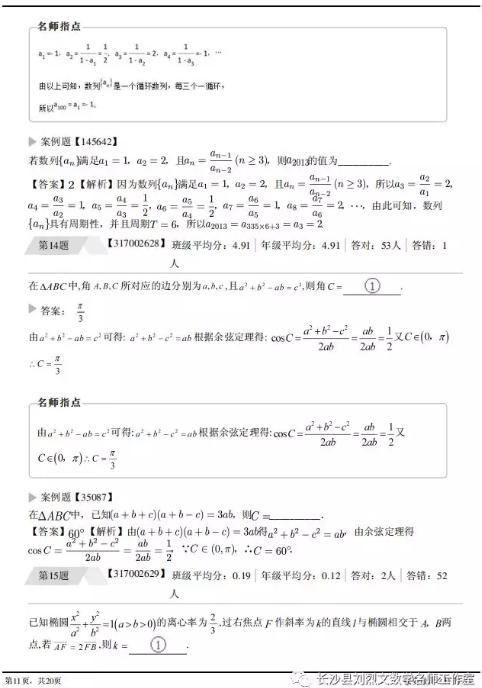 名师指点
a₁=-1, a₂=1/(1-a₁)=1/2, a₃=1/(1-a₂)=2, a₄=1/(1-a₃)=-1, …
由以上可知，数列{aₙ}是一个循环数列，每三个一循环，
所以a₁₀₀=a₁=-1.
案例题【145642】
若数列{aₙ}满足a₁=1, a₂=2, 且aₙ=aₙ₋₁/aₙ₋₂(n≥3), 则a₂₀₁₃的值为________.
【答案】2【解析】因为数列{aₙ}满足a₁=1, a₂=2, 且aₙ=aₙ₋₁/aₙ₋₂(n≥3), 所以a₃=a₂/a₁=2,
a₄=a₃/a₂=1, a₅=a₄/a₃=1/2, a₆=a₅/a₄=1/2, a₇=a₆/a₅=1, a₈=a₇/a₆=2, …, 由此可知, 数列
{aₙ}具有周期性，并且周期T=6, 所以a₂₀₁₃=a₃₃₅ₓ₆₊₃=a₃=2
第14题 【317002628】 班级平均分：4.91 | 年级平均分：4.91 | 答对：53人 | 答错：1
人
在ΔABC中,角A,B,C所对应的边分别为a,b,c,且a²+b²-ab=c²,则角C= ① .
答案： π/3
由a²+b²-ab=c²可得: a²+b²-c²=ab根据余弦定理得: cosC=(a²+b²-c²)/2ab=ab/2ab=1/2又C∈(0, π)
∴C=π/3
名师指点
由a²+b²-ab=c²可得:a²+b²-c²=ab根据余弦定理得:cosC=(a²+b²-c²)/2ab=ab/2ab=1/2又
C∈(0, π)∴C=π/3
案例题【35087】
在ΔABC中，已知(a+b+c)(a+b-c)=3ab, 则C=________.
【答案】60°【解析】由(a+b+c)(a+b-c)=3ab得a²+b²-c²=ab, 由余弦定理得
cosC=(a²+b²-c²)/2ab=ab/2ab=1/2, ∵C∈(0,π), ∴C=60°.
第15题 【317002629】 班级平均分：0.19 | 年级平均分：0.12 | 答对：2人 | 答错：52
人
已知椭圆x²/a²+y²/b²=1(a>b>0)的离心率为2/3,过右焦点F作斜率为k的直线l与椭圆相交于A, B两
点,若AF=2FB,则k= ① .
第11页，共20页
长沙县刘烈文数学名师工作室